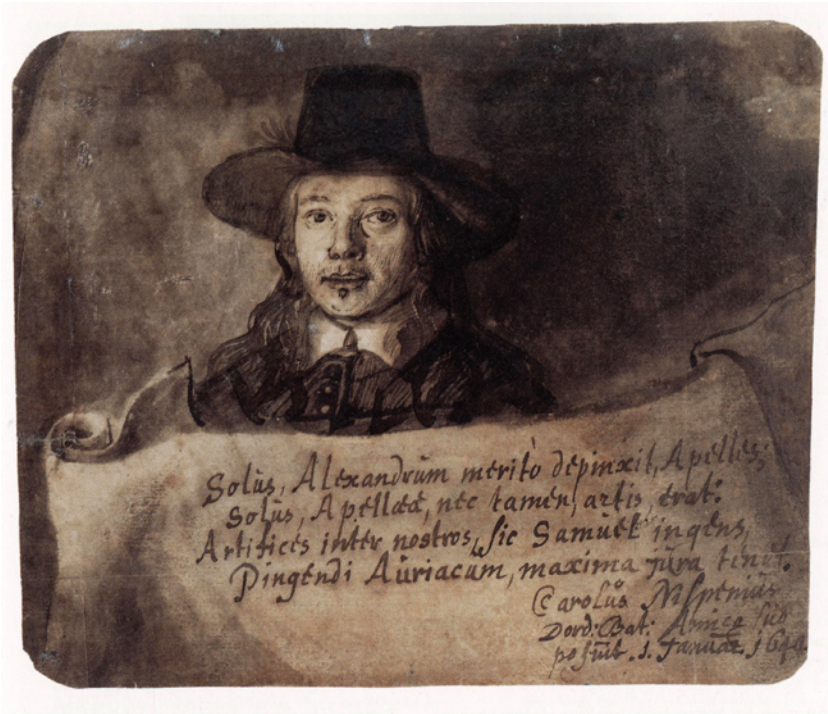 Solùs, Alexandrùm meritò depinxit, Apelles;
Solùs, Apelleæ, nec tamen, artis, erat:
Artifices inter nostros, sic Samùel ingens,
Pingendi Aùriacùm, maxima jùra tenùt.
Carolùs Nispeniùs
Dord: Bat: Amico sùo
posùit. 1. Janùar. 164